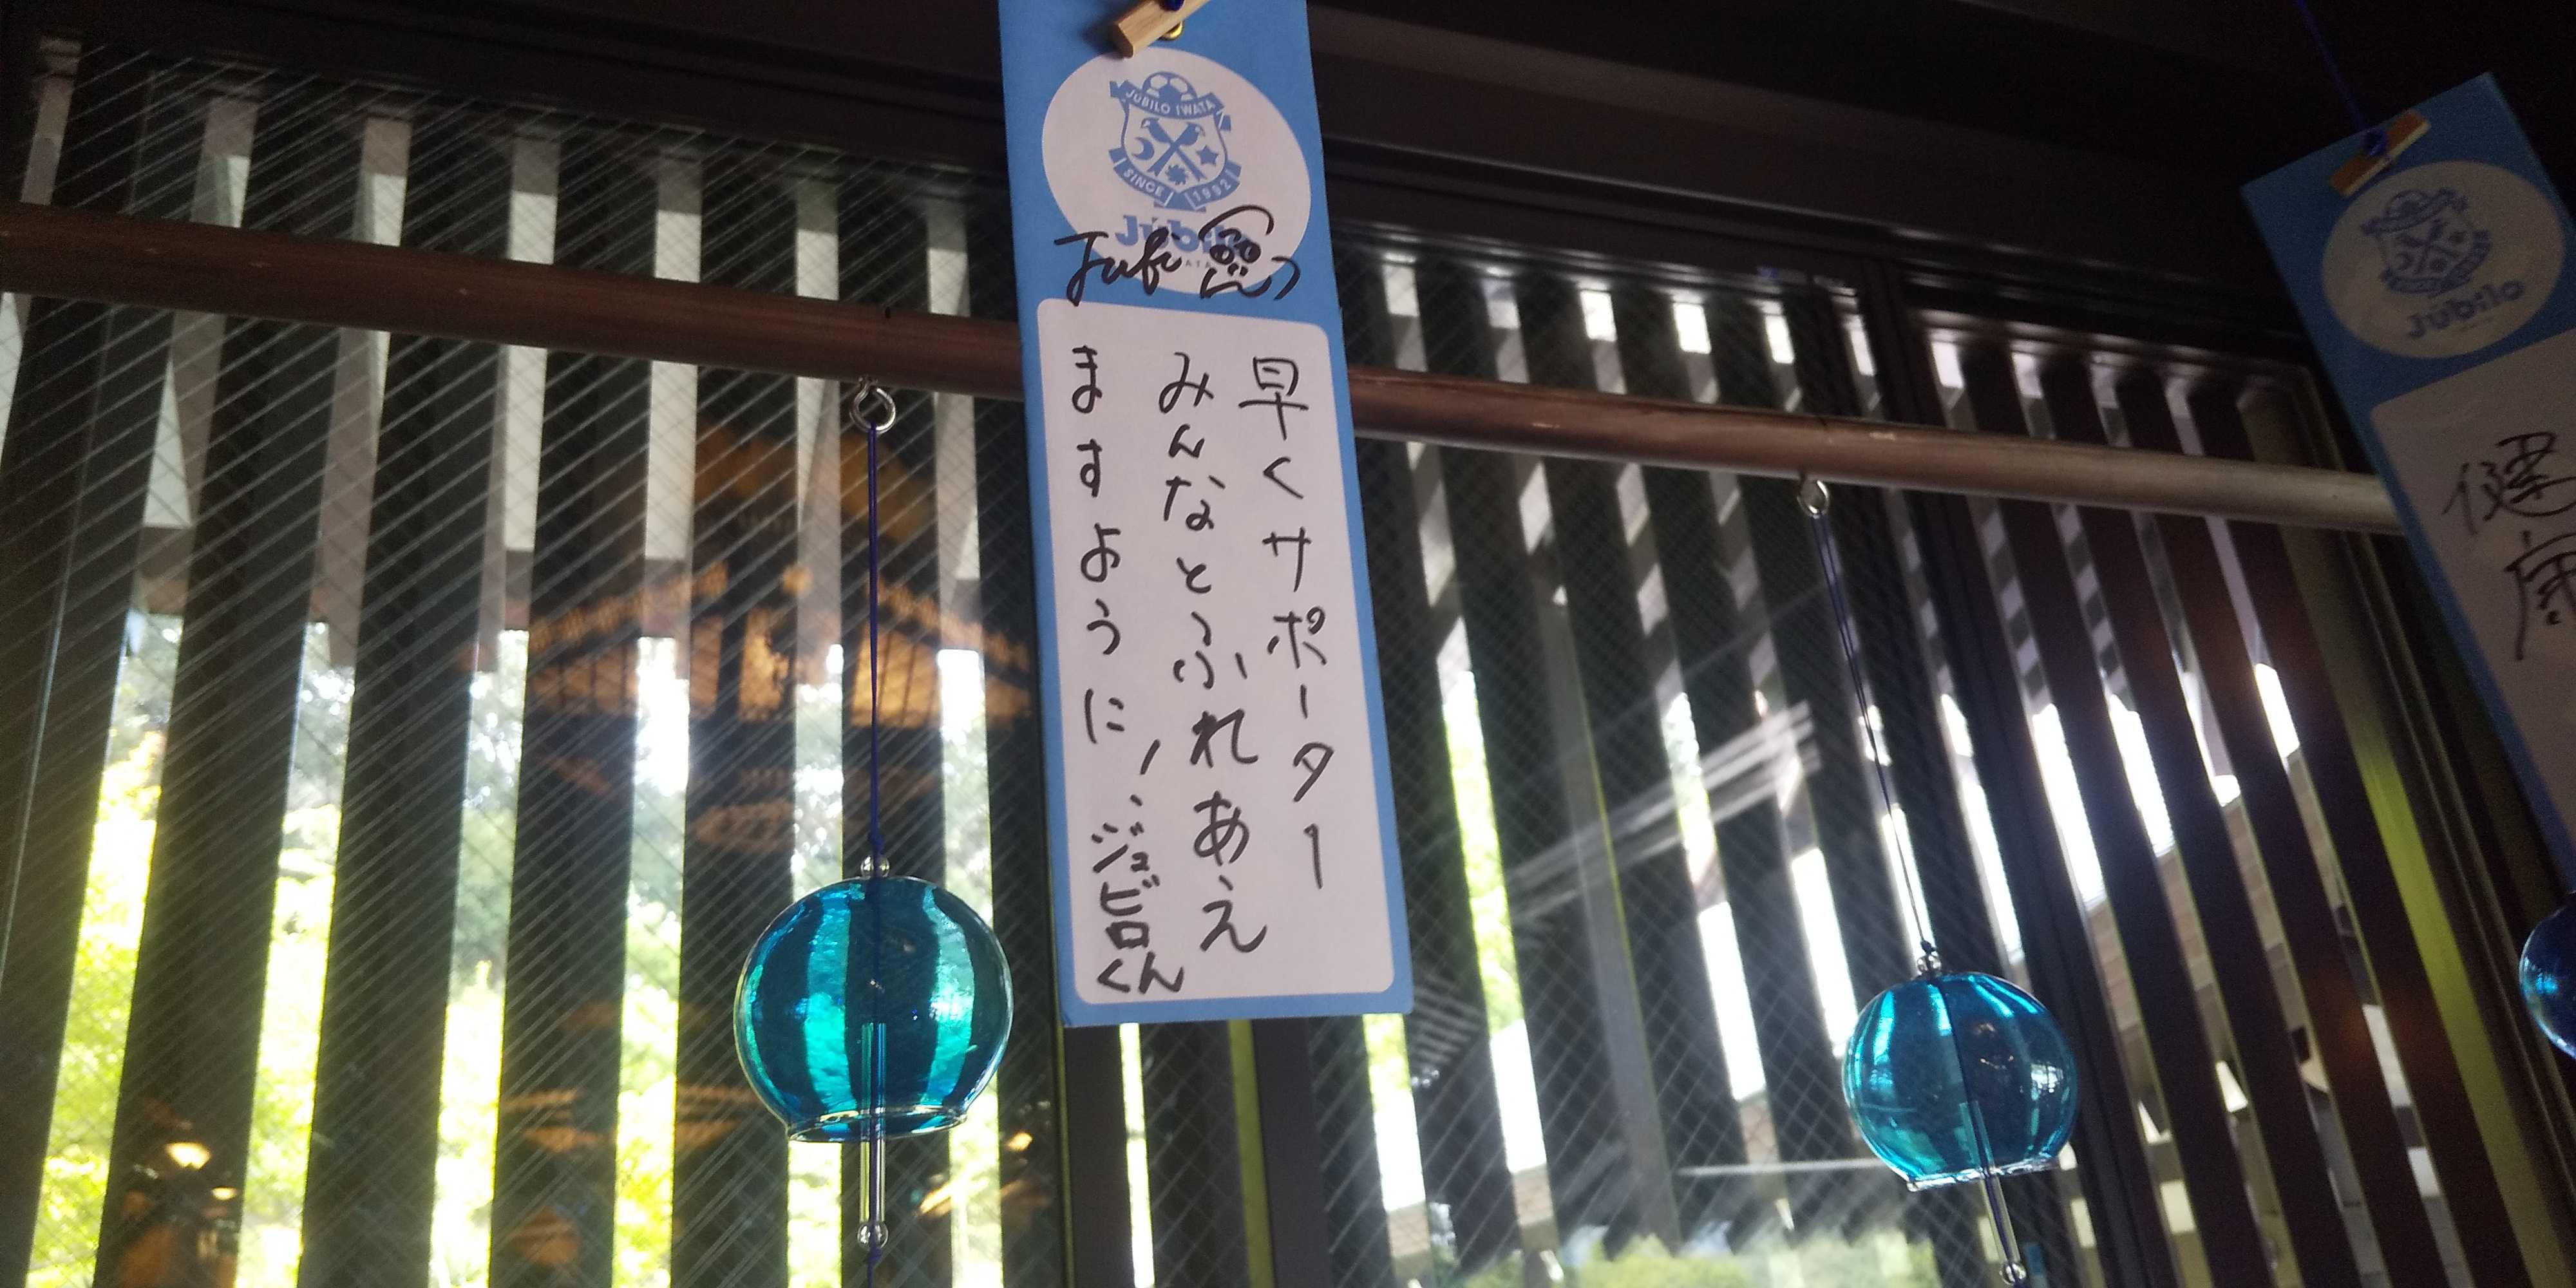 JUBILO IWATA
SINCE 1992
Júbilo
Jubi
早くサポーター
みんなとふれあえ
ますように!
ジュビロくん
Júbilo
健康